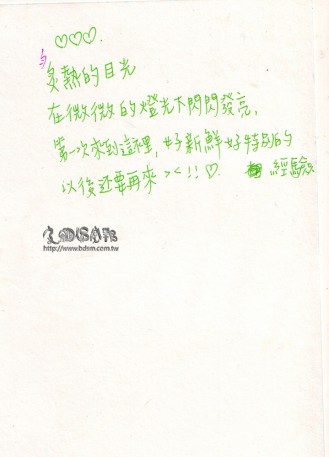 ♡♡♡.
炙熱的目光
在微微的燈光下閃閃發亮,
第一次來到這裡,好新鮮好特別的
以後還要再來 ><!!♡. 經驗
http://www.bdsm.com.tw